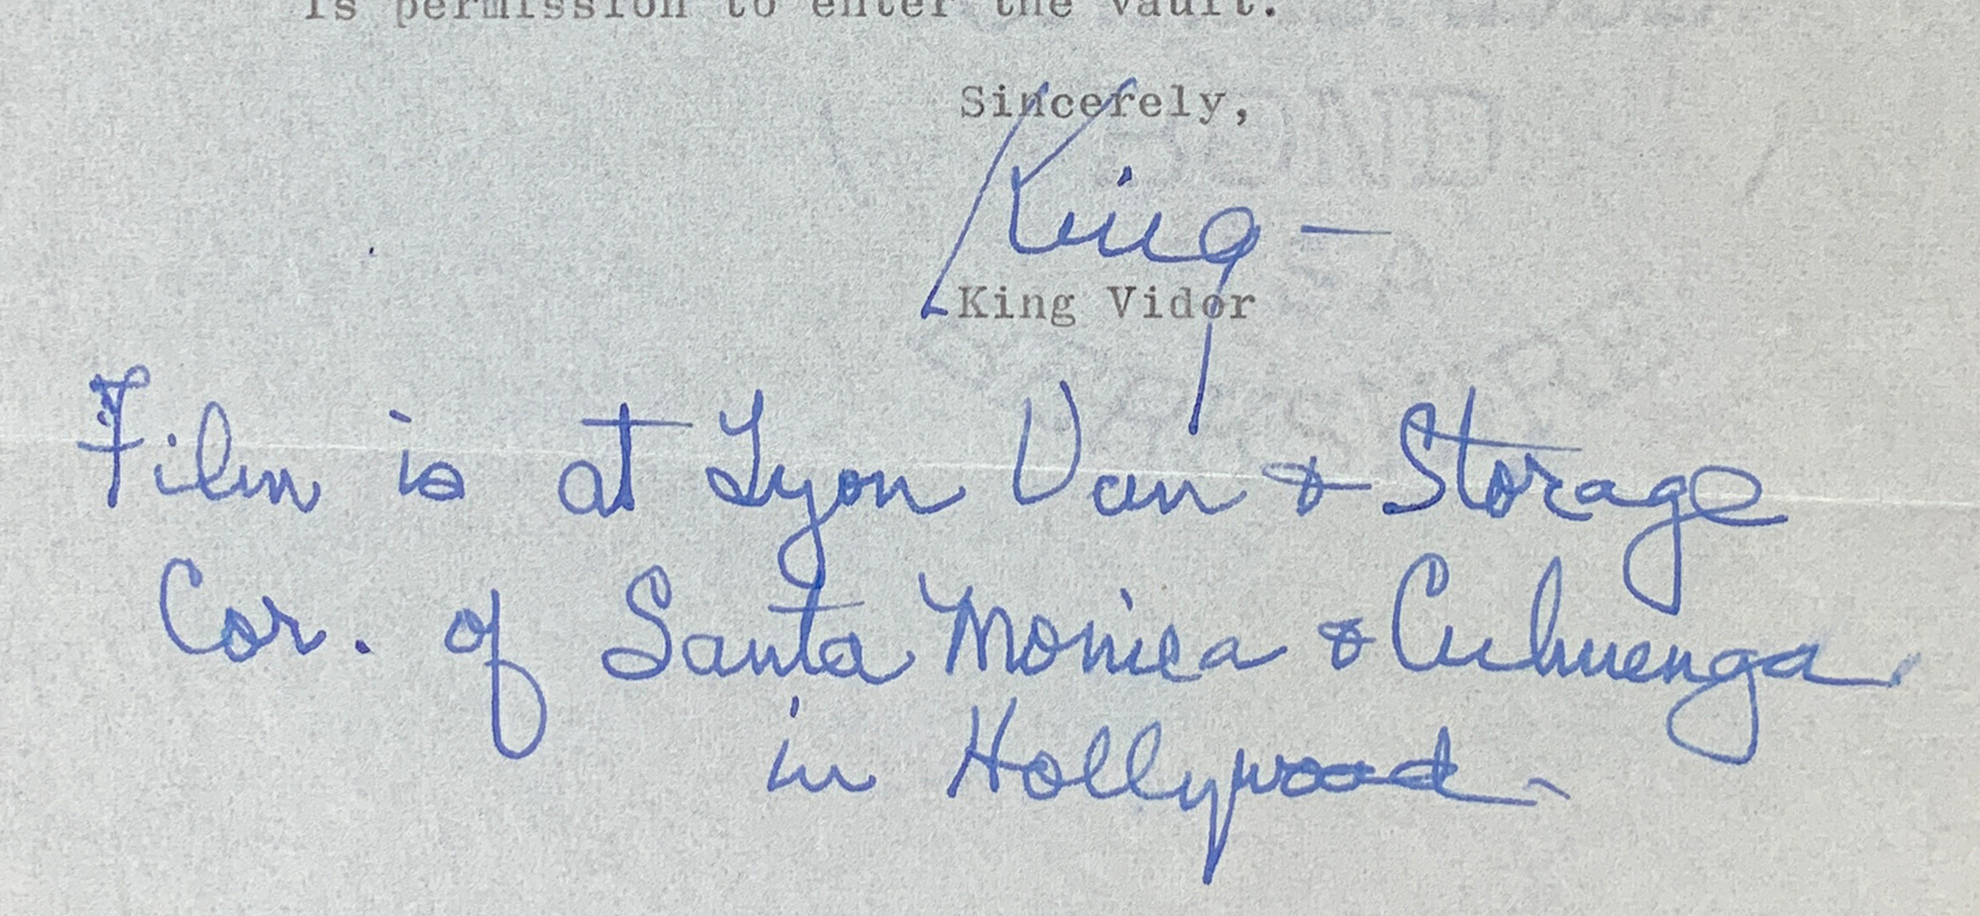 is permission to enter the vault.
Sincerely,
King —
King Vidor
Film is at Lyon Van & Storage
Cor. of Santa Monica & Cuhuenga
in Hollywood